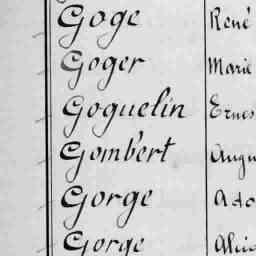 Goge René
Goger Marie
Goguelin Ernes
Gombert Augu
Gorge Ado
Gorge Alic